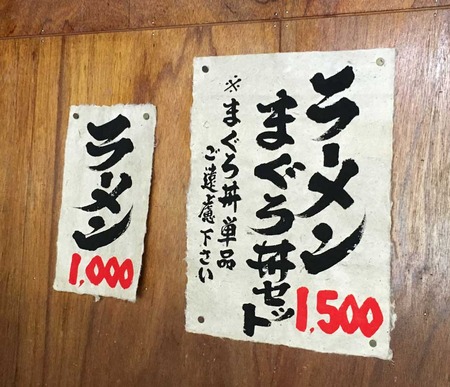 ラーメン
まぐろ丼セット
1,500
※まぐろ丼単品
ご遠慮下さい
ラーメン
1,000